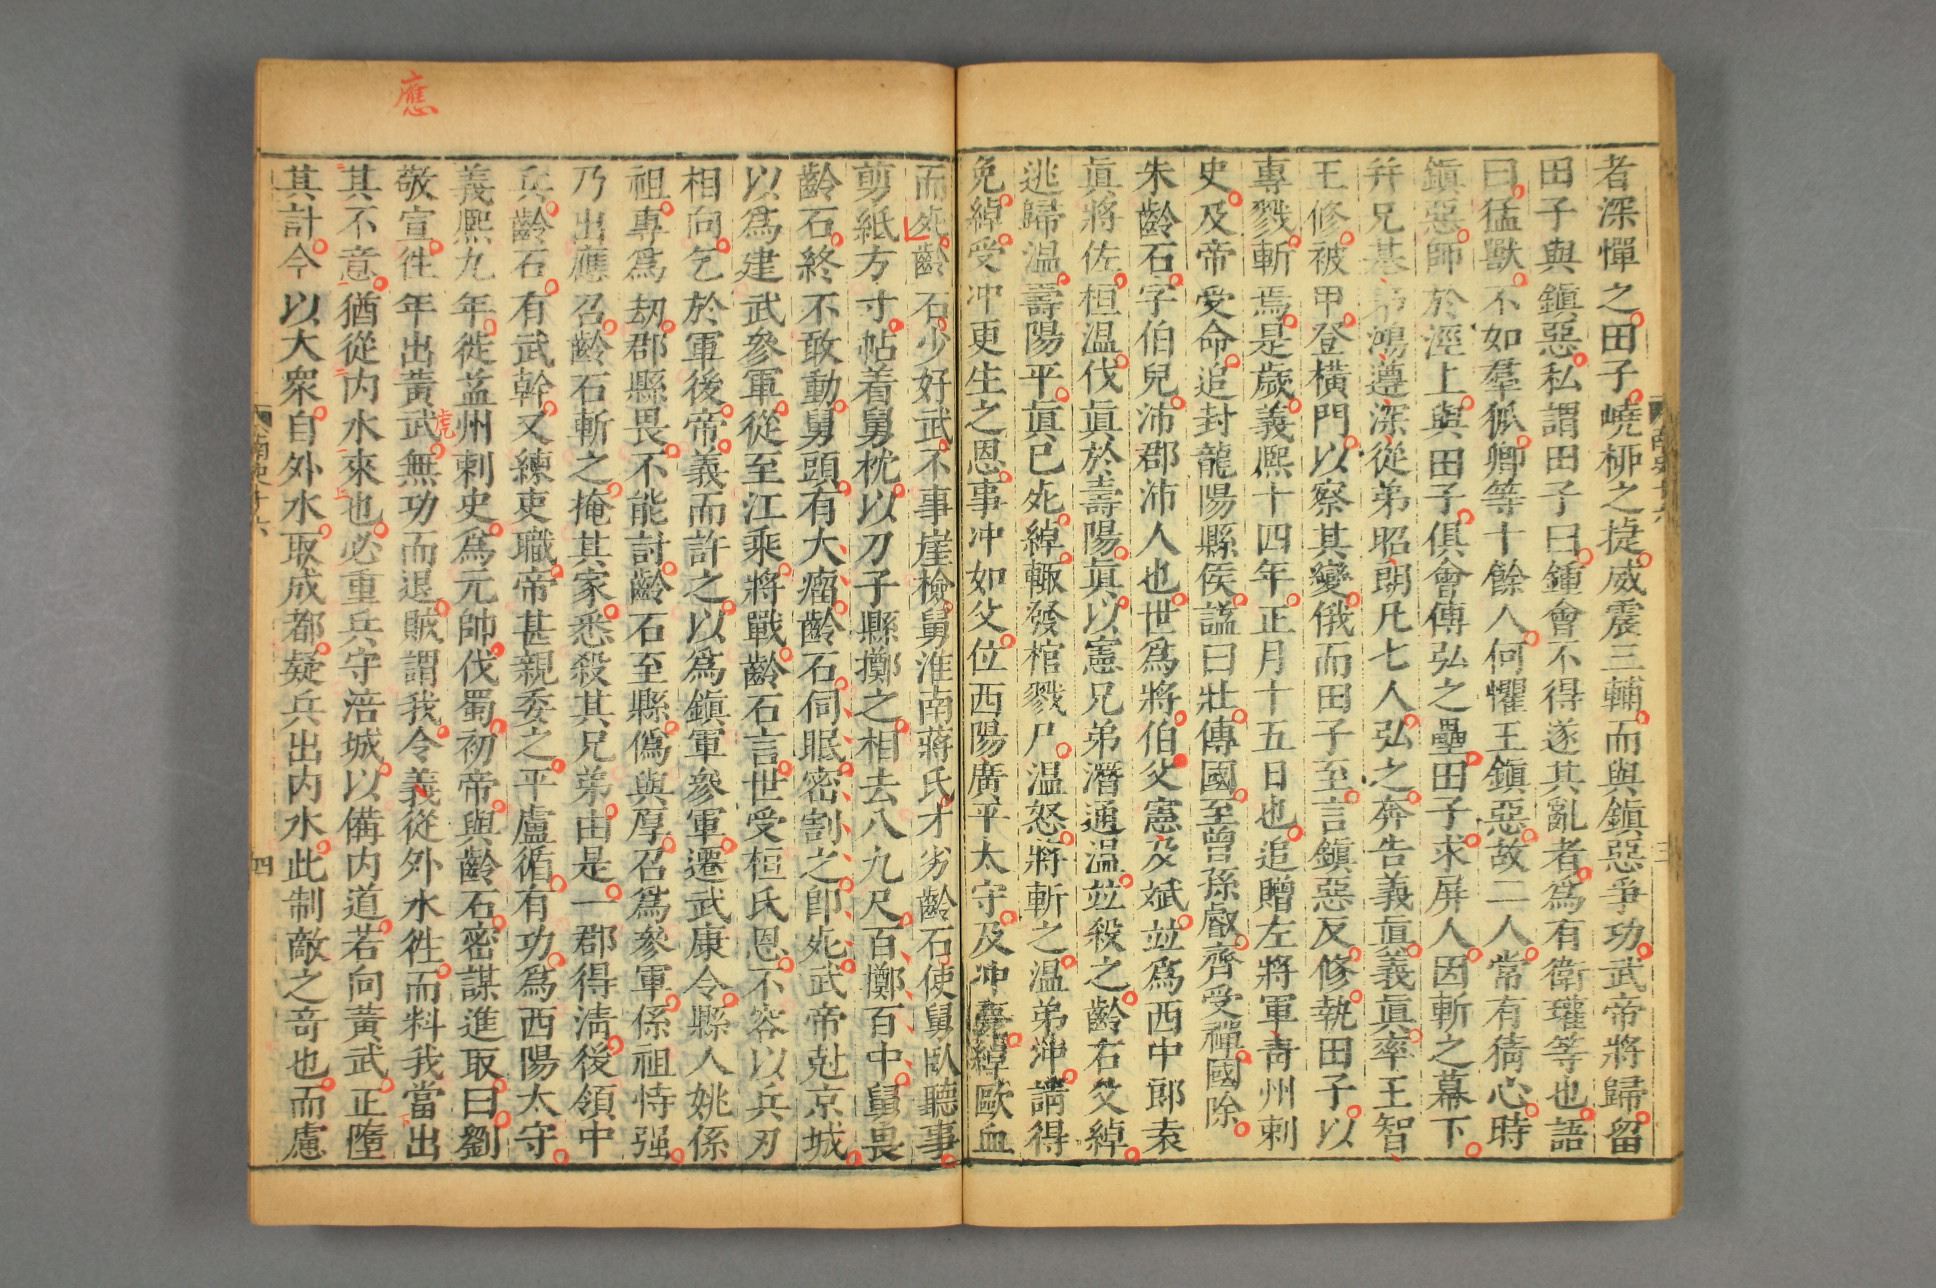 者深憚之田子嶢栁之捷威震三輔而與鎮惡爭功武帝將歸留
田子與鎮惡私謂田子曰鍾會不得遂其亂者爲有衛瓘等也語
曰猛獸不如羣狐卿等十餘人何懼王鎮惡故二人常有猜心時
鎮惡師於涇上與田子俱會傅弘之壘田子求屏人因斬之幕下
并兄基弟鴻遵深從弟昭朗凡七人弘之奔告義眞義眞率王智
王修被甲登橫門以察其變俄而田子至言鎮惡反修執田子以
專戮斬焉是歲義熙十四年正月十五日也追贈左將軍青州刺
史及帝受命追封龍陽縣侯謚曰壯傳國至曾孫叡齊受禪國除
朱齡石字伯兒沛郡沛人也世爲將伯父憲及斌並爲西中郎袁
眞將佐桓温伐眞於壽陽眞以憲兄弟潛通温並殺之齡石父綽
逃歸温壽陽平眞已死綽輙發棺戮尸温怒將斬之温弟沖請得
免綽受冲更生之恩事冲如父位西陽廣平太守及冲薨綽歐血
而死齡石少好武不事崖檢舅淮南蔣氏才劣齡石使舅臥聽事
剪紙方寸帖着舅枕以刀子縣擲之相去八九尺百擲百中舅畏
齡石終不敢動舅頭有大瘤齡石伺眠密割之卽死武帝尅京城
以爲建武參軍從至江乘將戰齡石言世受桓氏恩不容以兵刃
相向乞於軍後帝義而許之以爲鎮軍參軍遷武康令縣人姚係
祖專爲刼郡縣畏不能討齡石至縣僞與厚召爲參軍係祖恃强
乃出應召齡石斬之掩其家悉殺其兄弟由是一郡得淸後領中
兵齡石有武幹又練吏職帝甚親委之平盧循有功爲西陽太守
義熙九年徙益州刺史爲元帥伐蜀初帝與齡石密謀進取曰劉
敬宣徃年出黃武無功而退賊謂我令義從外水徃而料我當出
其不意猶從内水來也必重兵守涪城以備内道若向黃武正墮
其計今以大衆自外水取成都疑兵出内水此制敵之奇也而慮
應
虎
南史十六
四